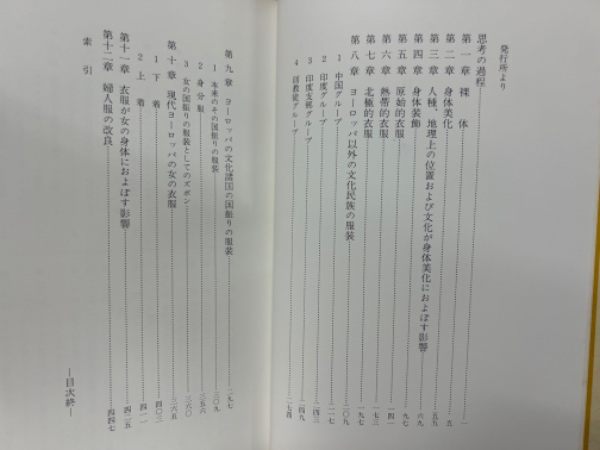 発行所より
思考の過程
第一章 裸体………一
第二章 身体美化………五
第三章 人種、地理上の位置および文化が身体美化におよぼす影響………五五
第四章 身体装飾………六九
第五章 原始的衣服………一四一
第六章 熱帯的衣服………一六三
第七章 北極的衣服………一七三
第八章 ヨーロッパ以外の文化民族の服装………二〇九
1 中国グループ………二一七
2 印度グループ………二四三
3 印度支那グループ………二四九
4 回教徒グループ………二七四
第九章 ヨーロッパの文化諸国の国振りの服装………二九七
1 本来のその国振りの服装………三〇九
2 身分服………三五六
3 女の国振りの服装としてのズボン………三六〇
第十章 現代ヨーロッパの女の衣服………三六五
1 下着………四〇三
2 上着………四一一
第十一章 衣服が女の身体におよぼす影響………四二五
第十二章 婦人服の改良………四四七
索引
―目次終―